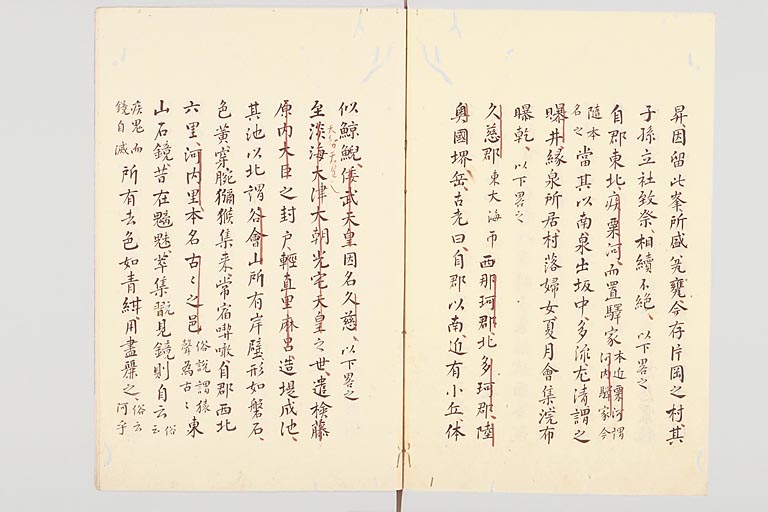 昇因留此峯所盛瓮甕今存片岡之村其
子孫立社致祭相續不絶 以下畧之
自郡東北挾粟河而置驛家 本近粟河謂河内驛家今
隨本名之 當其以南泉出坂中多流尤清謂之
曝井縁泉所居村落婦女夏月會集浣布
曝乾 以下畧之
久慈郡 東大海 西那珂郡北多珂郡陸
奥國堺岳 古老曰自郡以南近有小丘体
似鯨鯢倭武天皇因名久慈 以下畧之
至淡海大津大朝光宅天皇之世遣檢藤
原内大臣之封戸輕直里麻呂造堤成池
其池以北謂谷會山所有岸壁形如磐石
色黄穿腕獼猴集来常宿喫噉自郡西北
六里河内里本名古々之邑 俗説謂猿聲為古々 東
山石鏡昔在魑魅萃集翫見鏡則自去 俗云
疾鬼面鏡自滅 所有土色如青紺用畫麗之 俗云阿乎